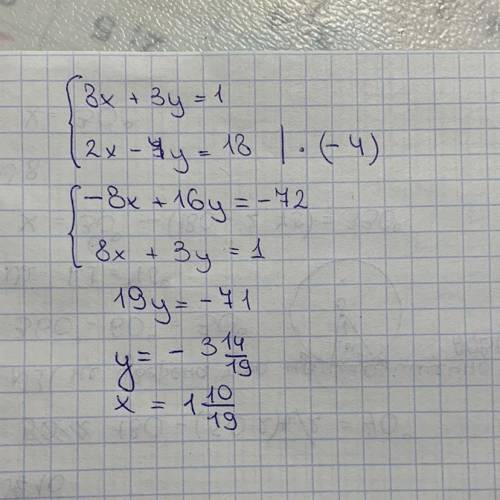 8x + 3y = 1
2x - 4y = 18 | · (-4)
-8x + 16y = -72
8x + 3y = 1
19y = -71
y = - 3 14/19
x = 1 10/19